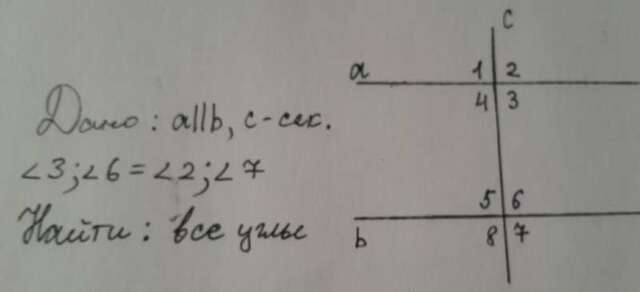 c
a 1 2
4 3
Дано: a||b, c-сек.
∠3;∠6=∠2;∠7
5 6
Найти: все углы
b 8 7